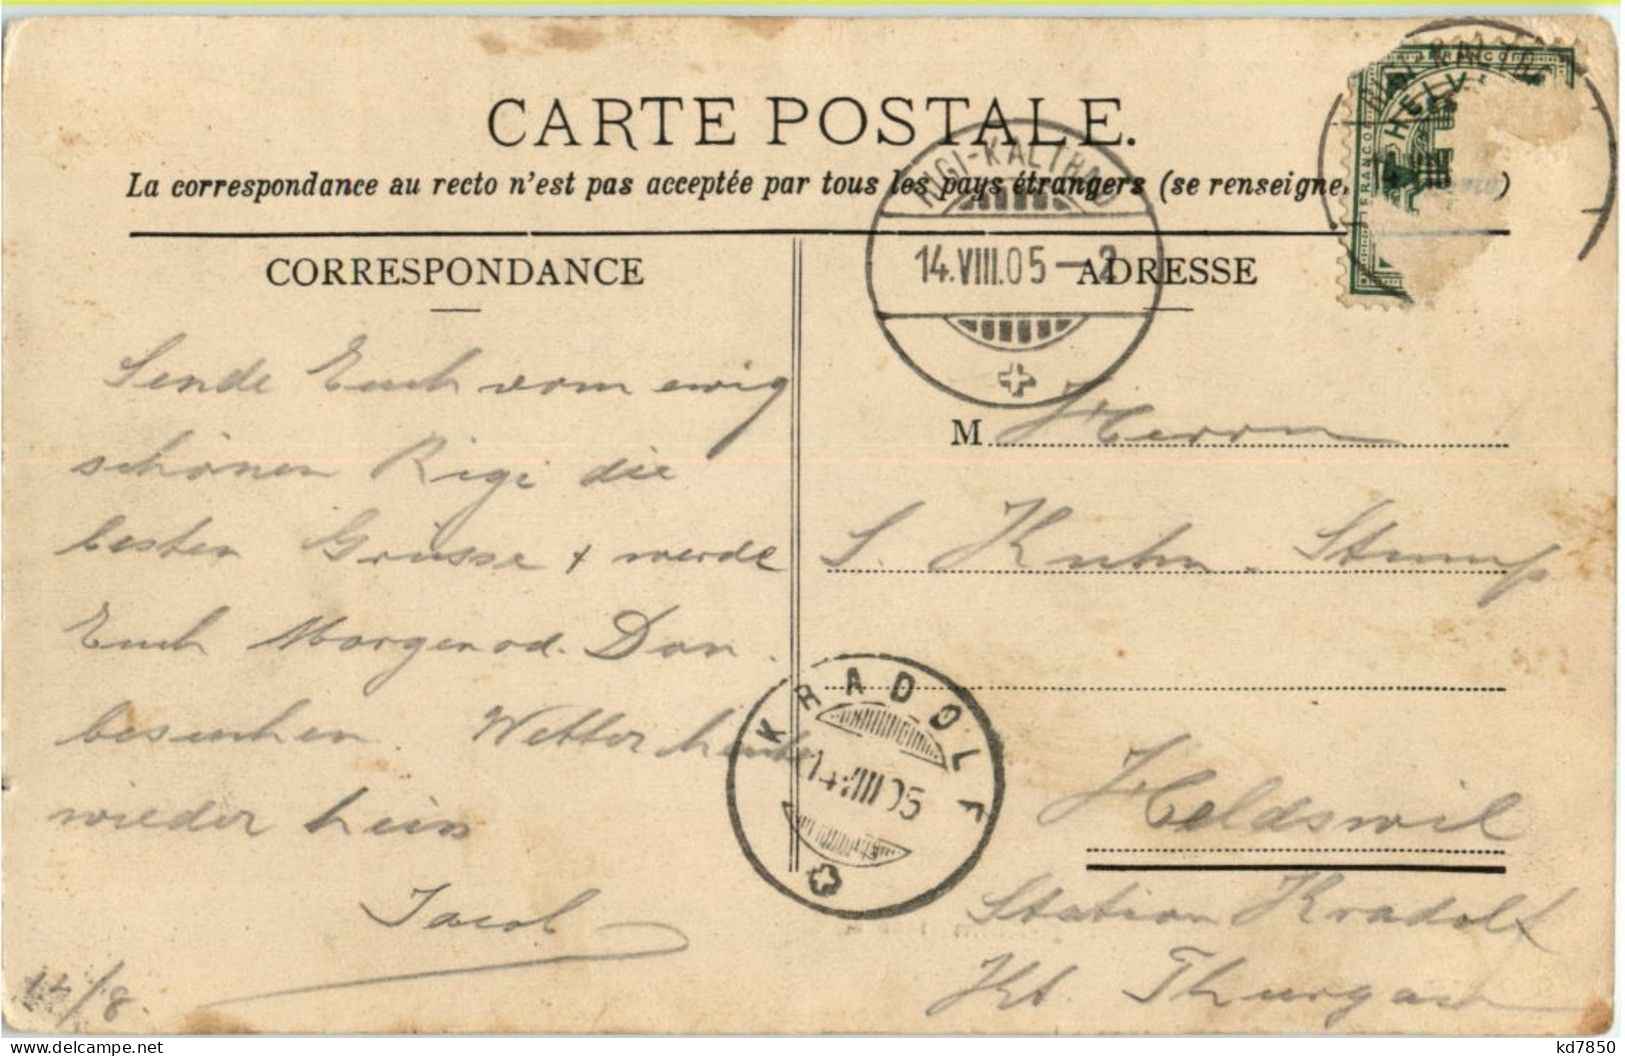 CARTE POSTALE.
La correspondance au recto n'est pas acceptée par tous les pays étrangers (se renseigner )
CORRESPONDANCE
ADRESSE
RIGI-KALTBAD
14.VIII.05-2
FRANCO
HELV
FRANCO
Sende Euch vom ewig
schönen Rigi die
besten Grüsse + werde
Euch Morgen od. Don.
besuchen. Wetter heute
wieder
Jacob
14/8.
M Herrn
S. Kuhn-Stump
Heldswil
Station Kradolf
Kt. Thurgau
KRADOLF
14.VIII.05
delcampe.net
kd7850